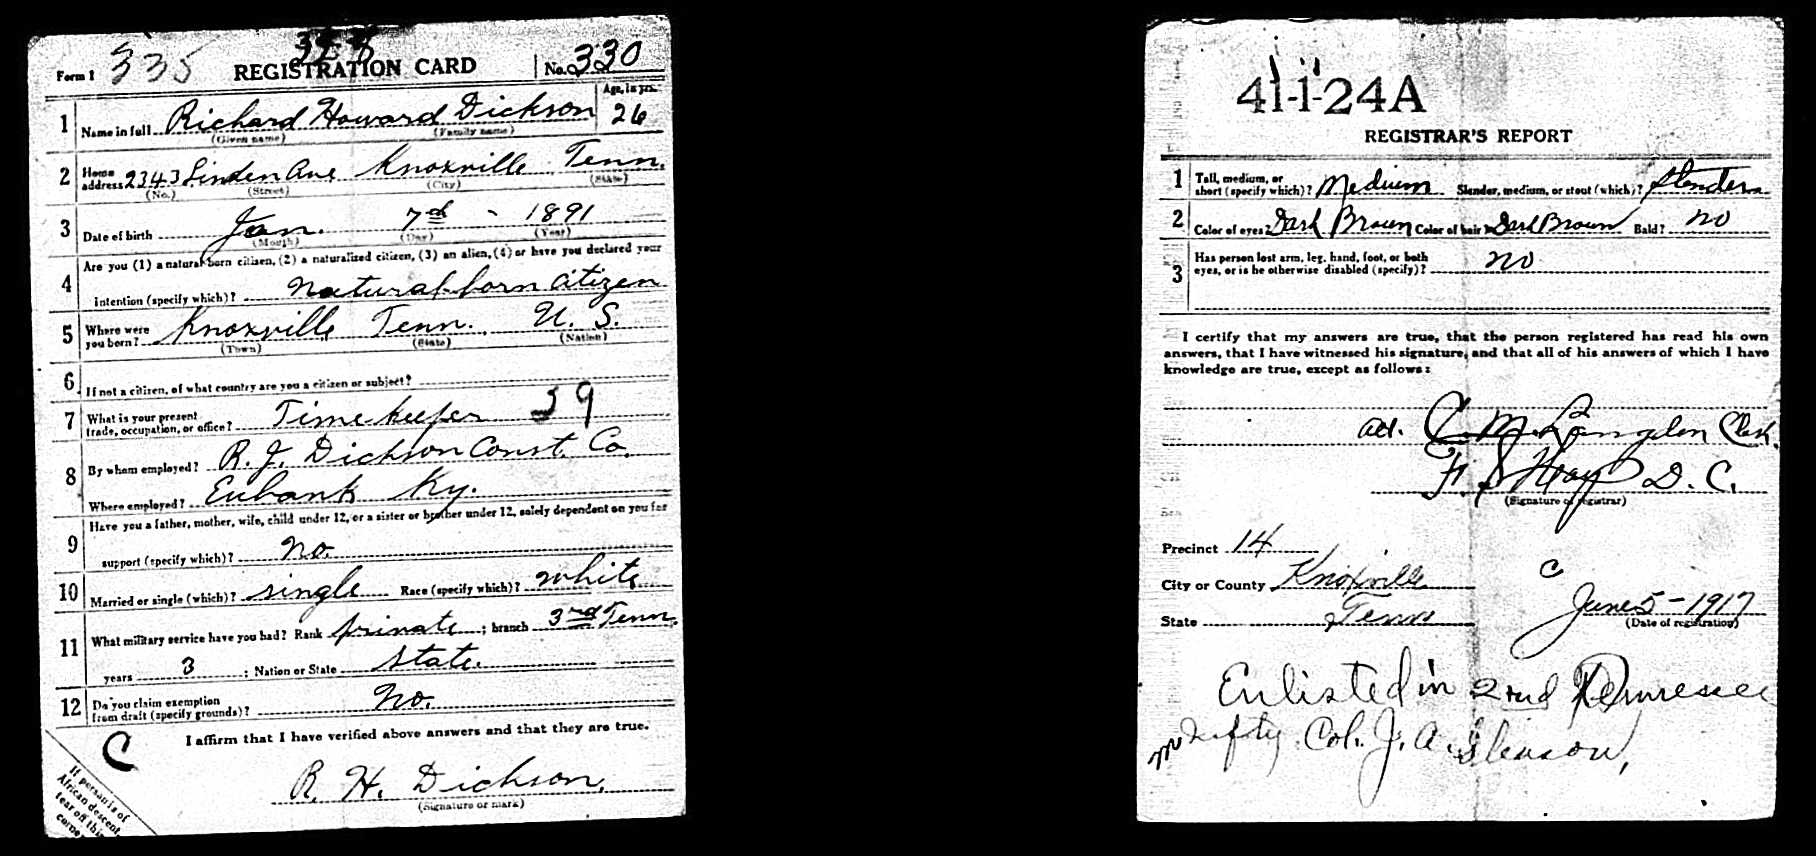 335
Form 1 REGISTRATION CARD No. 330
Age, in yrs.
1 Name in full Richard Howard Dickson 26
(Given name) (Family name)
2 Home address 2343 Linden Ave Knoxville Tenn.
(No.) (Street) (City) (State)
3 Date of birth Jan. 7th - 1891
(Month) (Day) (Year)
Are you (1) a natural born citizen, (2) a naturalized citizen, (3) an alien, (4) or have you declared your
4 intention (specify which)? Natural-born Citizen
5 Where were you born? Knoxville Tenn. U. S.
(Town) (State) (Nation)
6 If not a citizen, of what country are you a citizen or subject?
7 What is your present trade, occupation, or office? Time-keeper 39
8 By whom employed? R. J. Dickson Const. Co.
Where employed? Eubank Ky.
Have you a father, mother, wife, child under 12, or a sister or brother under 12, solely dependent on you for
9 support (specify which)? No.
10 Married or single (which)? single Race (specify which)? white
11 What military service have you had? Rank private ; branch 3rd Tenn.
years 3 ; Nation or State State.
12 Do you claim exemption from draft (specify grounds)? No.
I affirm that I have verified above answers and that they are true.
C
R. H. Dickson.
(Signature or mark)
If person is of
African descent,
tear off this
corner
41-1-24A
REGISTRAR'S REPORT
1 Tall, medium, or short (specify which)? Medium Slender, medium, or stout (which)? Slender
2 Color of eyes? Dark Brown Color of hair? Dark Brown Bald? No
3 Has person lost arm, leg, hand, foot, or both eyes, or is he otherwise disabled (specify)? No
I certify that my answers are true, that the person registered has read his own
answers, that I have witnessed his signature, and that all of his answers of which I have
knowledge are true, except as follows:
C. M. Langdon Clerk.
D. C.
(Signature of registrar)
Precinct 14
City or County Knoxville C
State Tenn June 5-1917
(Date of registration)
Enlisted in 2nd Tennessee
Col. J. A.